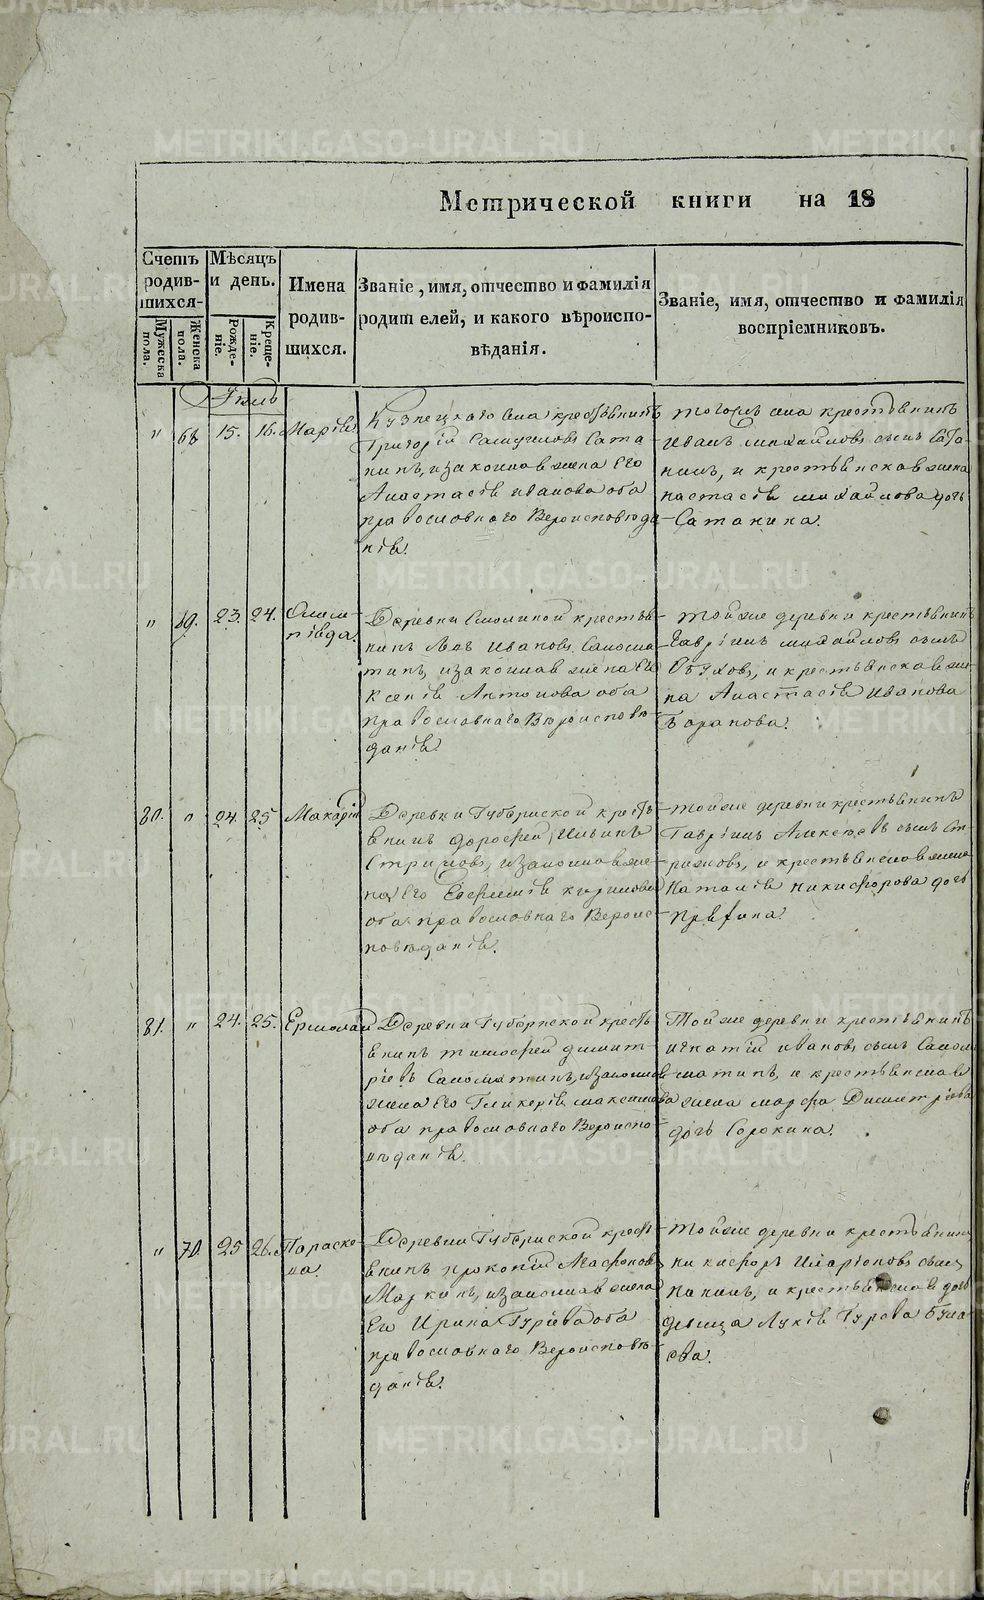 Метрической книги на 18
Счетъ родив-шихся-
Мѣсяцъ и день.
Имена родив-шихся.
Званіе, имя, отчество и фамилія
родителей, и какого вѣроиспо-
вѣданія.
Званіе, имя, отчество и фамилія
воспріемниковъ.
Мужеска пола.
Женска пола.
Рожде-ніе.
Креще-ніе.
" 68 15. 16. Марія
Кузнецкаго села крестьянинъ
Григорій Самуиловъ Сата-
кинъ, и законная жена его
Анастасія Иванова оба
православнаго вероисповюда
нія.
тогоже села крестьянинъ
Иванъ Михайловъ сынъ Сата-
кинъ, и крестьянская жена
настасія михайлова дочь
Сатакина.
" 69. 23. 24. Олим-
піада.
Деревни крестья-
нинъ Иванов Самосма
тинъ, и законная жена его
Ксенія Антонова оба
православнаго Вѣроисповѣ
данія.
той же деревни крестьянинъ
Гавріилъ михайловъ сынъ
Обуховъ, и крестьянская же-
на Анастасія Иванова
80. " 24. 25 Макарій
Деревни Губернской кресть
янинъ Дорофей Ильинъ
Стрижовъ, и законная же-
на его Евфимія кирилова
оба православнаго Вероис-
повѣданія.
той же деревни крестьянинъ
Гавріилъ Алексѣевъ сынъ Ст-
рижовъ, и крестьянская жена
Наталія Никифорова дочь
Пряхина.
81. " 24. 25. Ермолай
Деревни Губернской кресть
янинъ тимофей димит-
ріевъ Самосматинъ, и законная
жена его Гликерія максимова
оба православнаго Вероиспо-
вѣданія.
Той же деревни крестьянинъ
игнатій ивановъ сынъ Самос-
матинъ, и крестьянская
жена марфа Димитріева
дочь Сорокина.
" 70. 25 26. Параске-
ва.
Деревни Губернской кресть
янинъ прокопій Агафоновъ
Маркинъ, и законная жена
его Ирина Гуріева оба
православнаго Вероисповѣ
данія.
той же деревни крестьянинъ
никифоръ Иларіоновъ сынъ
и крестьянская дочь
девица Лукія Гурова Була
ева.
METRIKI.GASO-URAL.RU